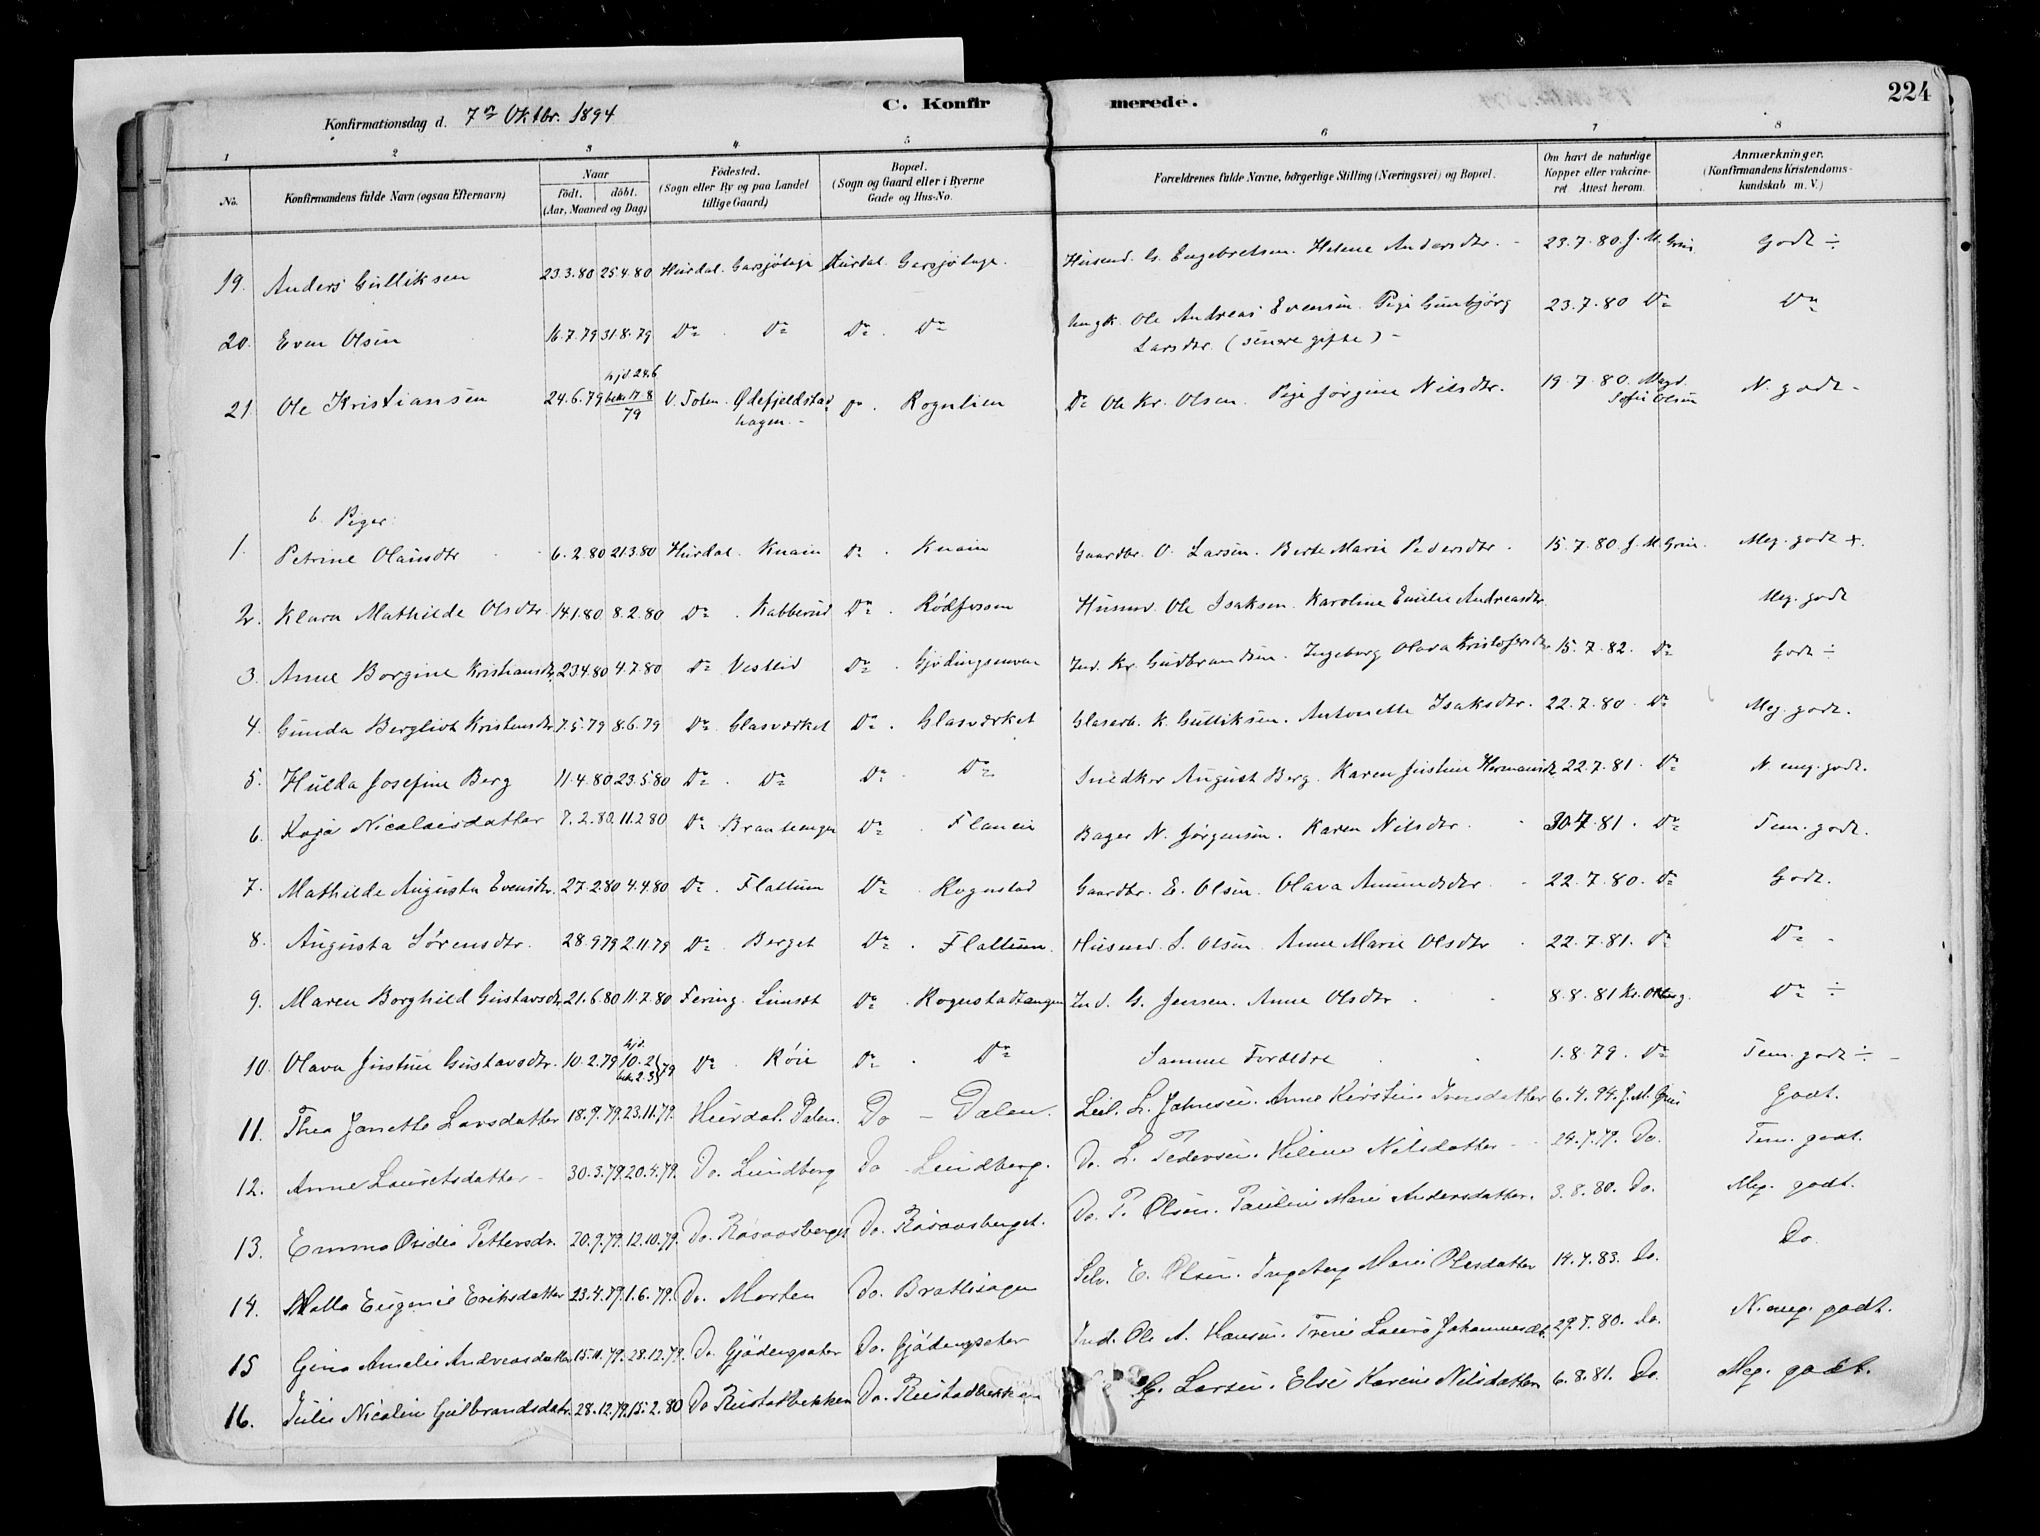 224
Konfirmationsdag d. 7de Oktbr. 1894
C. Konfir merede.
1 2 3 4 5 6 7 8
No. Konfirmandens fulde Navn (ogsaa Efternavn) Naar født. døbt. (Aar, Maaned og Dag) Fødested. (Sogn eller By og paa Landet tillige Gaard) Bopæl. (Sogn og Gaard eller i Byerne Gade og Hus-No. Forældrenes fulde Navne, børgerlige Stilling (Næringsvei) og Bopæl. Om havt de naturlige Kopper eller vakcineret Attest herom. Anmærkninger. (Konfirmandens Kristendomskundskab m. V.)
19. Anders Gulliksen 23.3.80 25.4.80 Hurdal. Garsjøhage Hurdal. Garsjøhage. Husmd. G. Engebretsen. Helene Andersdtr. - 23.7.80. J. M. Grin Godt ÷
20. Even Olsen 16.7.79 31.8.79 Do . Do Do . Do Ungk. Ole Andreas Evensen. Pige Gunbjørg Larsdtr. (senere gifte) - 23.7.80 Do Do
21. Ole Kristiansen 24.6.79 hjd. 24.6 bekr. 17.8 79 V. Toten. Ødefjeldstadhagen. - Do. Rognlien Do Ole Kr. Olsen. Pige Jørgine Nilsdtr. 19.7.80. Magd. Sofie Olsen N. godt -
b. Piger.
1. Petrine Olausdtr 6.2.80 21.3.80 Hurdal. Knain Do . Knain Gaardbr. O. Larsen. Berte Marie Pedersdtr. 15.7.80 J. M. Grin. Meg. godt +.
2. Klara Mathilde Olsdtr. 14.1.80 8.2.80 Do . Kabberud Do . Rødfossen Husmd. Ole Isaksen. Karoline Emilie Andreasdtr Meg. godt
3. Anne Borgine Kristiansdtr. 23.4.80 4.7.80 Do Vestlid Do . Gjødingsmoen Ind. Kr. Gudbrandsen. Ingeborg Olava Kristofersdtr 15.7.82. Do Godt ÷
4. Gunda Bergliot Kristensdtr 7.5.79 8.6.79 Do Glasværket Do . Glasværket Glasarb. K. Gulliksen. Antonette Isaksdtr. 22.7.80 . Do Meg. godt.
5. Hulda Josefine Berg 11.4.80 23.5.80 Do . Do Do . Do Snedker August Berg. Karen Justine Hermansdtr 22.7.81 . Do N. meg. godt.
6. Kaja Nicolaisdatter 7.2.80. 11.2.80 Do Brautengen Do . Flanein Bager N. Jørgensen. Karen Nilsdtr. 30.7.81 . Do Tem. godt.
7. Mathilde Augusta Evensdtr. 27.2.80 4.4.80 Do . Flattum Do . Rognstad Gaardbr. E. Olsen. Olava Amundsdtr. 22.7.80. Do Godt.
8. Augusta Sørensdtr. 28.9.79 2.11.79 Do . Berget Do . Flattum. Husmd. S. Olsen. Anne Marie Olsdtr 22.7.81. Do Do -
9. Maren Borghild Gustavsdtr. 21.6.80 11.7.80 Fering. Linsdt Do . Rognstadtangen Ind. G. Jensen. Anne Olsdtr 8.8.81 Kr. Otterg. Do ÷
10. Olava Justine Gustavsdtr. 10.2.79 hjd. 10.2 bekr. 2.3 79 Do . Røie Do . Do Samme Forældre 1.8.79 . Do Tem. godt ÷ -
11. Thea Janette Larsdatter 18.9.79. 23.11.79. Hurdal. Dalen. Do - Dalen. Leil. L. Johnsen. Anne Kirstine Iversdatter 6.4.94. J. M. Grin Godt.
12. Anne Lauritsdatter - 30.3.79. 20.4.79. Do. Lundberg Do . Lundberg. Do. L. Pedersen. Helene Nilsdatter - 29.7.79. Do. Tem. godt.
13. Emma Ovidia Pettersdr. 20.9.79. 12.10.79. Do. Råsaasberget Do. Råsaasberget. Do. P. Olsen. Pauline Marie Andersdatter. 3.8.80. Do. Meg. godt.
14. Malla Eugenie Eriksdatter 23.4.79. 1.6.79. Do. Morten Do. Brattlisagen Selv. E. Olsen. Ingeborg Marie Olesdatter 14.7.83. Do. Do.
15 Gina Amelie Andreasdatter 15.11.79. 28.12.79. Do. Gjødengseter Do. Gjødengseter Ind. Ole A. Hansen. Trine Laura Johannesdt. 29.7.80. Do. N. meg. godt.
16. Julie Nicoline Gulbrandsdatr. 28.12.79. 15.2.80 Do. Rustadbekken Do. Rustadbekken G. Larsen. Else Karine Nilsdatter 6.8.81. Do. Meg. godt.